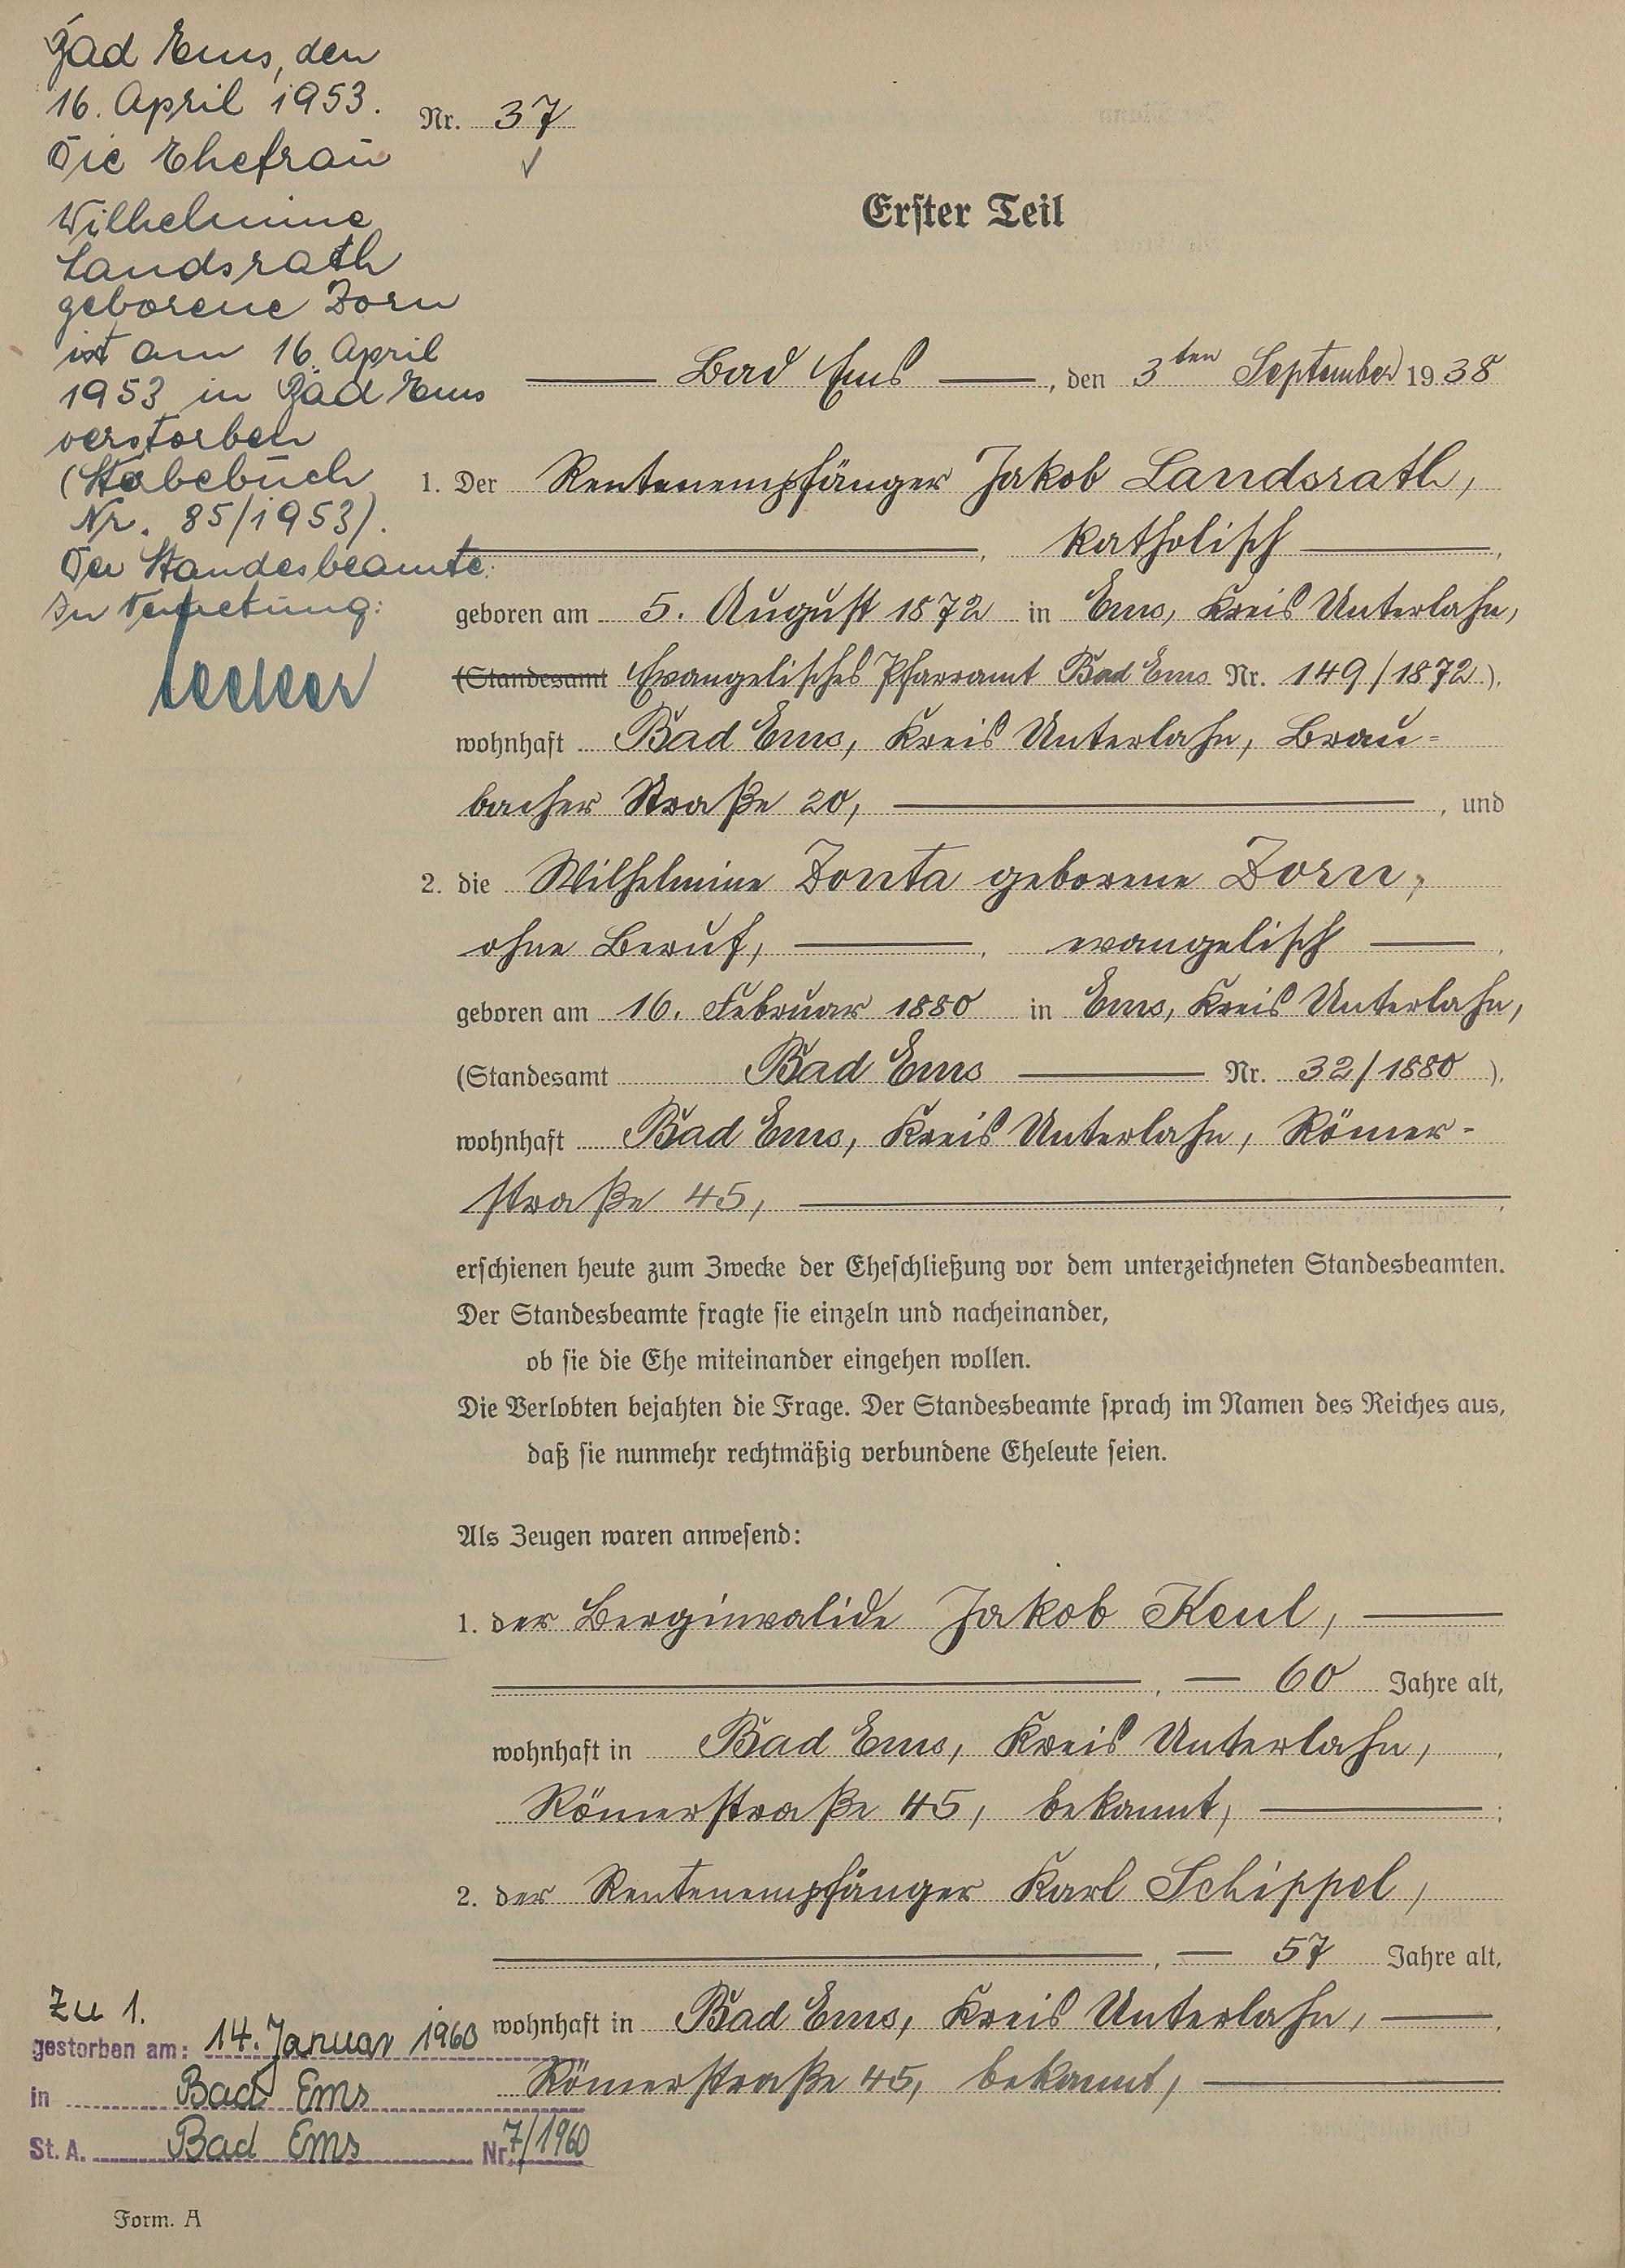 Bad Ems, den
16. April 1953.
Die Ehefrau
Wilhelmine
Landsrath
geborene Zorn
ist am 16. April
1953 in Bad Ems
verstorben
(Sterbebuch
Nr. 85/1953).
Der Standesbeamte:
In Vertretung:
Nr. 37
Erster Teil
Bad Ems, den 3ten September 1938
1. Der Rentenempfänger Jakob Landsrath,
, katholisch ,
geboren am 5. August 1872 in Ems, Kreis Unterlahn,
(Standesamt Evangelisches Pfarramt Bad Ems Nr. 149/1872),
wohnhaft Bad Ems, Kreis Unterlahn, Brau=
bacher Straße 20, , und
2. die Wilhelmine Zonta geborene Zorn,
ohne Beruf, , evangelisch ,
geboren am 16. Februar 1880 in Ems, Kreis Unterlahn,
(Standesamt Bad Ems Nr. 32/1880),
wohnhaft Bad Ems, Kreis Unterlahn, Römer-
straße 45,
erschienen heute zum Zwecke der Eheschließung vor dem unterzeichneten Standesbeamten.
Der Standesbeamte fragte sie einzeln und nacheinander,
ob sie die Ehe miteinander eingehen wollen.
Die Verlobten bejahten die Frage. Der Standesbeamte sprach im Namen des Reiches aus,
daß sie nunmehr rechtmäßig verbundene Eheleute seien.
Als Zeugen waren anwesend:
1. der Berginvalide Jakob Keul,
, 60 Jahre alt,
wohnhaft in Bad Ems, Kreis Unterlahn,
Römerstraße 45, bekannt, ;
2. der Rentenempfänger Karl Schippel,
, 57 Jahre alt,
wohnhaft in Bad Ems, Kreis Unterlahn,
Römerstraße 45, bekannt,
Zu 1.
gestorben am: 14. Januar 1960
in Bad Ems
St. A. Bad Ems Nr. 7/1960
Form. A